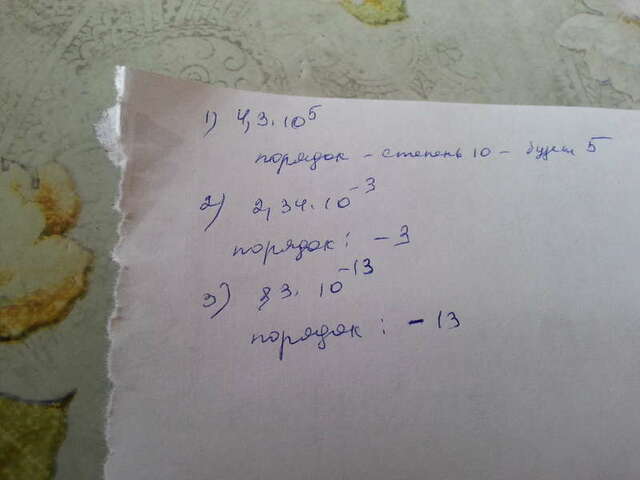 1) 4,3·10⁵
порядок – степень 10 – будет 5
2) 2,34·10⁻³
порядок: –3
3) 83·10⁻¹³
порядок: –13